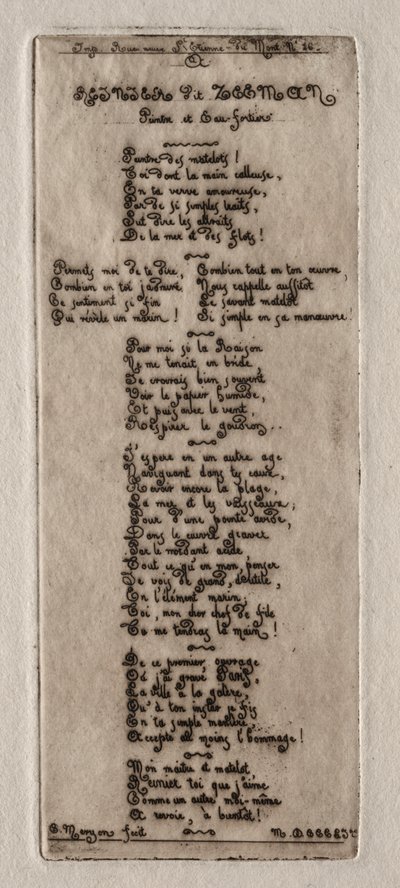 Imp. Rue neuve St Etienne-du Mont N° 26.
A
REINIER dit ZEEMAN
Peintre et Eau-fortier.
Peintre des matelots !
Toi dont la main calleuse,
En ta verve amoureuse,
Par de si simples traits,
Sut dire les attraits
De la mer et des flots !
Permets moi de te dire,
Combien en toi j'admire
Ce sentiment si fin
Qui révèle un marin !
Combien tout en ton œuvre,
Nous rappelle aussitôt
Le savant matelot
Si simple en sa manœuvre !
Pour moi si la Raison
Ne me tenait en bride,
Je croirais bien souvent
Voir le papier humide,
Et puis avec le vent,
Respirer le goudron..
J'espère en un autre age
Naviguant dans tes eaux,
Revoir encore la plage,
La mer et les vaisseaux ;
Pour d'une pointe avide,
Dans le cuivre graver
Par le mordant acide,
Tout ce qu'en mon penser
Je vois de grand, d'utile,
En l'élément marin ;
Toi, mon cher chef de file
Tu me tendras la main !
De ce premier ouvrage
Où j'ai gravé Paris,
La ville à la galère,
Qu'à ton instar je fis
En ta simple manière,
Accepte au moins l'hommage !
Mon maitre et matelot
Reinier toi que j'aime
Comme un autre moi-même
A revoir, à bientôt !
C. Meryon fecit